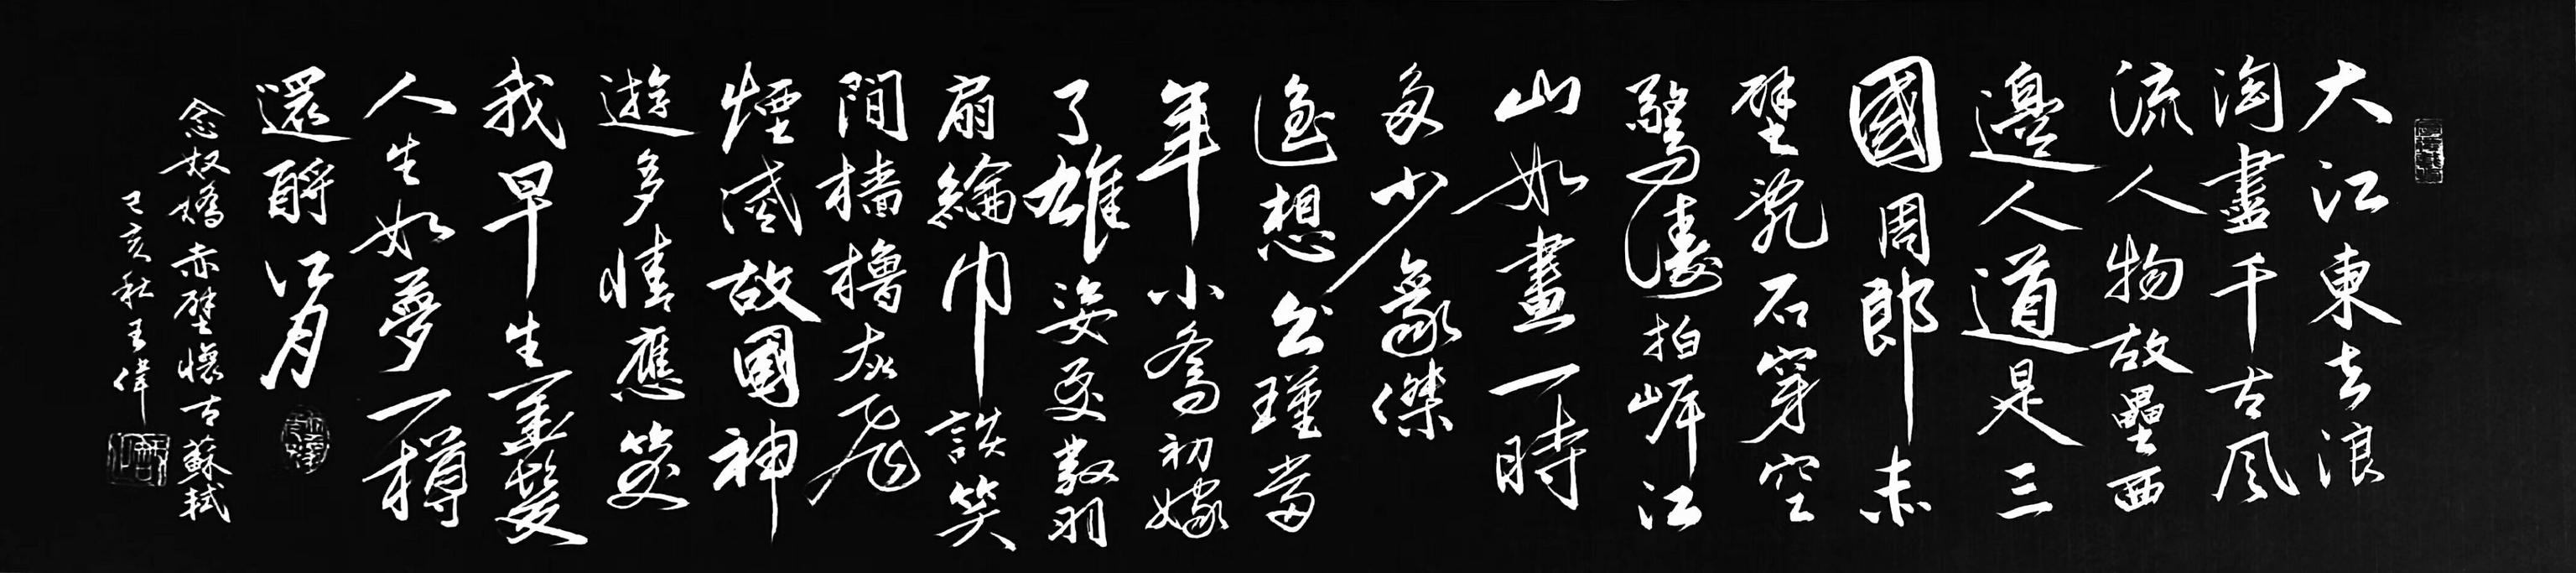 大江東去浪
淘盡千古風
流人物故壘西
邊人道是三
國周郎赤
壁亂石穿空
驚濤拍岸江
山如畫一時
多少豪傑
遙想公瑾當
年小喬初嫁
了雄姿英發羽
扇綸巾談笑
間檣櫓灰飛
煙滅故國神
遊多情應笑
我早生華髮
人生如夢一樽
還酹江月
念奴嬌赤壁懷古蘇軾
己亥秋王偉